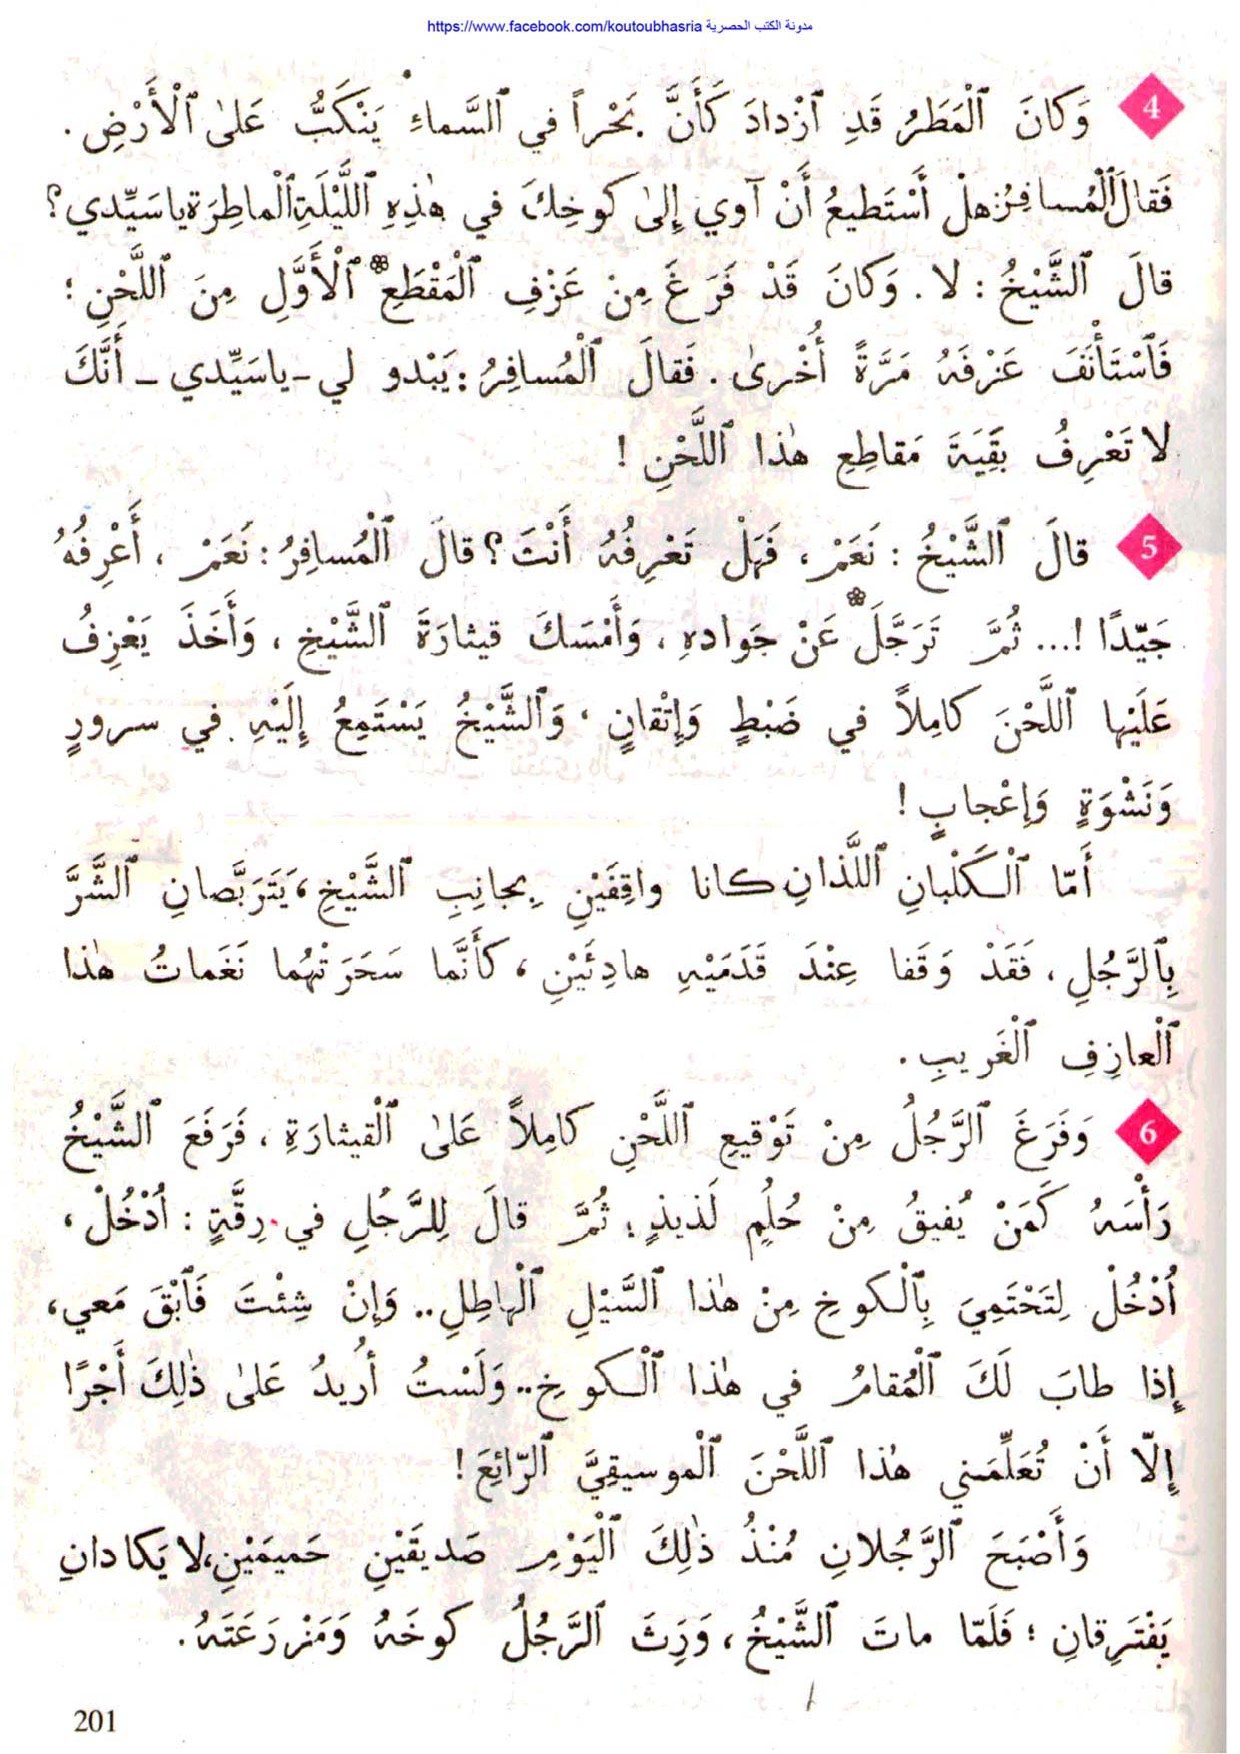 https://www.facebook.com/koutoubhasria مدونة الكتب الحصرية
4 وَكانَ ٱلْمَطَرُ قَدِ ٱزْدادَ كَأَنَّ بَحْراً في ٱلسَّماءِ يَنْكَبُّ عَلىٰ ٱلْأَرْضِ .
فَقالَ ٱلْمُسافِرُ: هلْ أَسْتَطيعُ أَنْ آوي إِلىٰ كوخِكَ في هٰذِهِ ٱللَّيْلَةِ ٱلْماطِرَةِ ياسَيِّدي ؟
قالَ ٱلشَّيْخُ : لا . وَكانَ قَدْ فَرَغَ مِنْ عَزْفِ ٱلْمَقْطَعِ❀ ٱلْأَوَّلِ مِنَ ٱللَّحْنِ ؛
فَٱسْتَأْنَفَ عَزْفَهُ مَرَّةً أُخْرىٰ . فَقالَ ٱلْمُسافِرُ : يَبْدو لي - ياسَيِّدي - أَنَّكَ
لا تَعْرِفُ بَقِيَةَ مَقاطِعِ هٰذا ٱللَّحْنِ !
5 قالَ ٱلشَّيْخُ : نَعَمْ ، فَهَلْ تَعْرِفُهُ أَنْتَ ؟ قالَ ٱلْمُسافِرُ : نَعَمْ ، أَعْرِفُهُ
جَيِّدًا !... ثُمَّ تَرَجَّلَ❀ عَنْ جَوادهِ ، وَأَمْسَكَ قيثارَةَ ٱلشَّيْخِ ، وَأَخَذَ يَعْزِفُ
عَلَيْها ٱللَّحْنَ كامِلاً في ضَبْطٍ وَإِتْقانٍ ، وَٱلشَّيْخُ يَسْتَمِعُ إِلَيْهِ في سرورٍ
وَنَشْوَةٍ وَإِعْجابٍ !
أَمّا ٱلْكَلْبانِ ٱللَّذانِ كانا واقِفَيْنِ بِجانِبِ ٱلشَّيْخِ ، يَتَرَبَّصانِ ٱلشَّرَّ
بِٱلرَّجُلِ ، فَقَدْ وَقَفا عِنْدَ قَدَمَيْهِ هادِئَيْنِ ، كَأَنَّما سَحَرَتْهُما نَغَماتُ هٰذا
ٱلْعازِفِ ٱلْغَريبِ .
6 وَفَرَغَ ٱلرَّجُلُ مِنْ تَوْقيعِ ٱللَّحْنِ كامِلاً عَلىٰ ٱلْقيثارَةِ ، فَرَفَعَ ٱلشَّيْخُ
رَأْسَهُ كَمَنْ يُفيقُ مِنْ حُلُمٍ لَذيذٍ ؛ ثُمَّ قالَ لِلرَّجُلِ في رِقَّةٍ : اُدْخُلْ ،
اُدْخُلْ لِتَحْتَمِيَ بِٱلْكوخِ مِنْ هٰذا ٱلسَّيْلِ ٱلْهاطِلِ .. وَإِنْ شِئْتَ فَٱبْقَ مَعي ،
إِذا طابَ لَكَ ٱلْمُقامُ في هٰذا ٱلْكوخِ .. وَلَسْتُ أُريدُ عَلىٰ ذٰلِكَ أَجْرًا
إِلّا أَنْ تُعَلِّمَني هٰذا ٱللَّحْنَ ٱلْموسيقِيَّ ٱلرّائِعَ !
وَأَصْبَحَ ٱلرَّجُلانِ مُنْذُ ذٰلِكَ ٱلْيَوْمِ صَديقَيْنِ حَميمَيْنِ ، لا يَكادانِ
يَفْتَرِقانِ ؛ فَلَمّا ماتَ ٱلشَّيْخُ ، وَرِثَ ٱلرَّجُلُ كوخَهُ وَمَزْرَعَتَهُ .
201